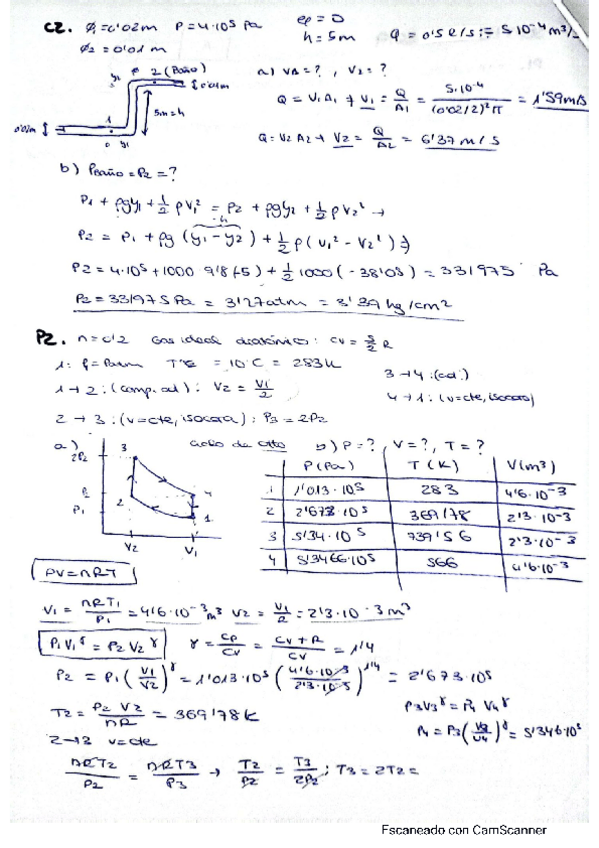 C2. ϕ₁=0'02m P=4·10⁵ Pa ep=0 h=5m Q=0'5 l/s = 5·10⁻⁴ m³/s
ϕ₂=0'01 m
y₂ P 2 (Baño) 0'01m
1 5m=h
0'02m 0 y₁
a) V₁=?, V₂=?
Q = V₁ A₁ → V₁ = Q/A₁ = 5·10⁻⁴/((0'02/2)²π) = 1'59 m/s
Q = V₂ A₂ → V₂ = Q/A₂ = 6'37 m/s
b) Pbaño = P₂ = ?
P₁ + ρgy₁ + ½ρV₁² = P₂ + ρgy₂ + ½ρV₂² →
-h
P₂ = P₁ + ρg(y₁-y₂) + ½ρ(V₁²-V₂²) ⇒
P₂ = 4·10⁵ + 1000 9'8(-5) + ½1000(-38'05) = 331975 Pa
P₂ = 331975 Pa = 3'27atm = 3'39 kg/cm²
P2. n=0'2 Gas ideal diatómico: CV = 5/2 R
1: P=Patm T = 10°C = 283K
1→2: (comp. ad): V₂ = V₁/2
3→4: (ad)
4→1: (V=cte, isocora)
2→3: (V=cte, isocora): P₃=2P₂
a) Ciclo de Otto b) P=?, V=?, T=?
2P₂ 3
P₂ 2 4
P₁ 1
V₂ V₁
P(Pa) T(K) V(m³)
1 1'013·10⁵ 283 4'6·10⁻³
2 2'673·10⁵ 369'78 2'3·10⁻³
3 5'34·10⁵ 739'56 2'3·10⁻³
4 5'3466·10⁵ 566 4'6·10⁻³
PV=nRT
V₁ = nRT₁/P₁ = 4'6·10⁻³ m³ V₂ = V₁/2 = 2'3·10⁻³ m³
P₁V₁^γ = P₂V₂^γ γ = Cp/CV = (CV+R)/CV = 1'4
P₂ = P₁(V₁/V₂)^γ = 1'013·10⁵(4'6·10⁻³/2'3·10⁻³)^1'4 = 2'673·10⁵
T₂ = P₂V₂/nR = 369'78K
P₃V₃^γ = P₄V₄^γ
P₄ = P₃(V₃/V₄)^γ = 5'346·10⁵
2→3 V=cte
nRT₂/P₂ = nRT₃/P₃ → T₂/P₂ = T₃/2P₂; T₃ = 2T₂ =
Escaneado con CamScanner